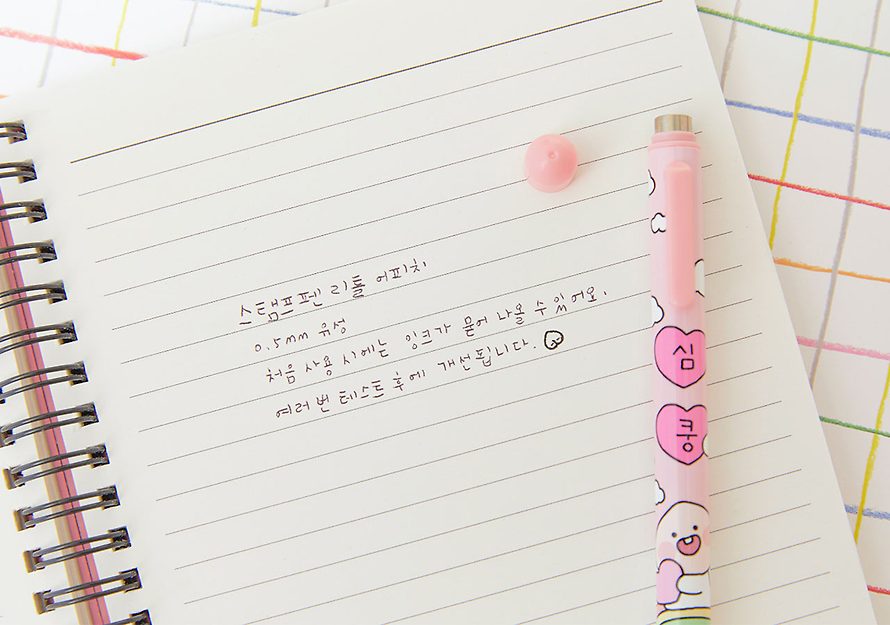 스탬프펜 리틀 어피치
0.5mm 유성
처음 사용 시에는 잉크가 묻어 나올 수 있어요.
여러 번 테스트 후에 개선됩니다.
심
쿵